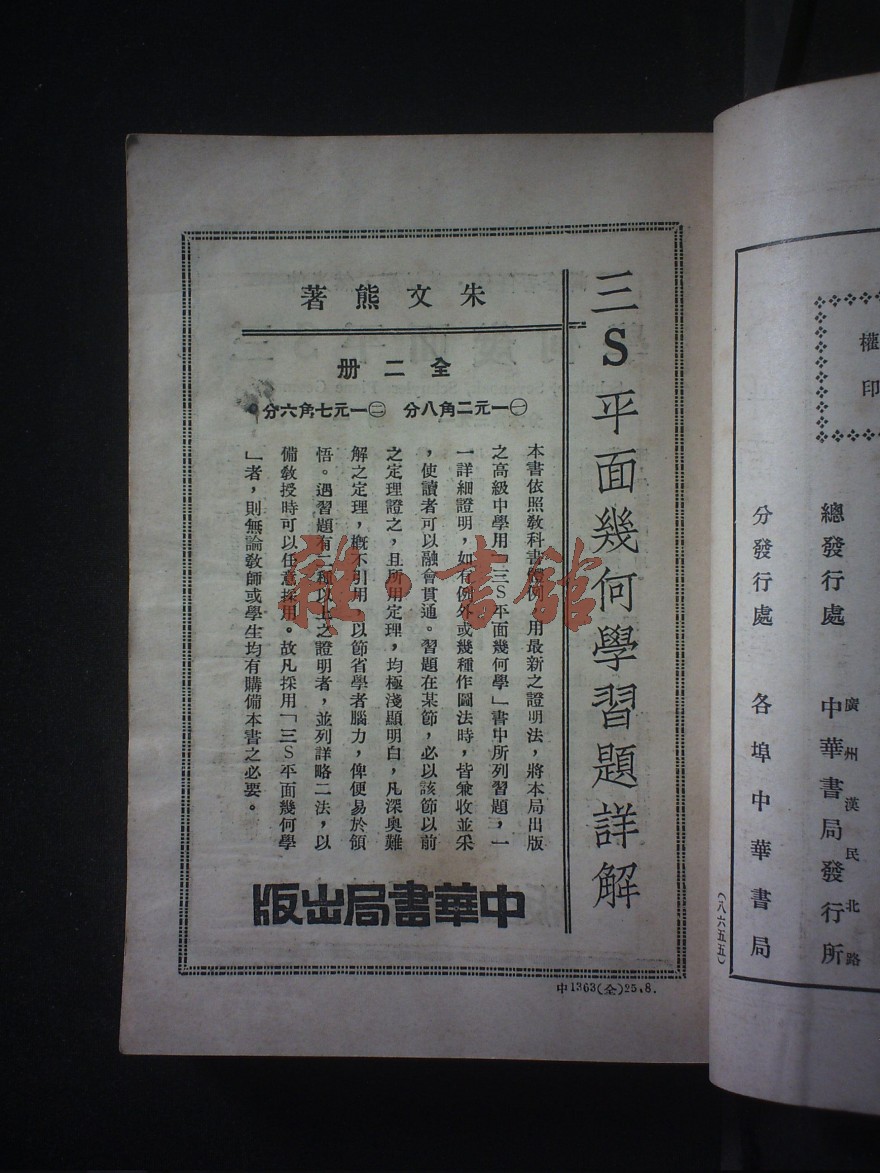 權
印
總發行處
廣州漢民北路
中華書局發行所
分發行處
各埠中華書局
(八六五五)
三S平面幾何學習題詳解
朱文熊著
全二册
㊀一元二角八分 ㊁一元七角六分
本書依照教科書體例,用最新之證明法,將本局出版
之高級中學用「三S平面幾何學」書中所列習題,一
一詳細證明,如有例外或幾種作圖法時,皆兼收並采
,使讀者可以融會貫通。習題在某節,必以該節以前
之定理證之,且所用定理,均極淺顯明白,凡深奥難
解之定理,概不引用,以節省學者腦力,俾便易於領
悟。遇習題有二種以上之證明者,並列詳略二法,以
備教授時可以任意採用。故凡採用「三S平面幾何學
」者,則無論教師或學生均有購備本書之必要。
中華書局出版
中1363(全)25,8.
雜·書館